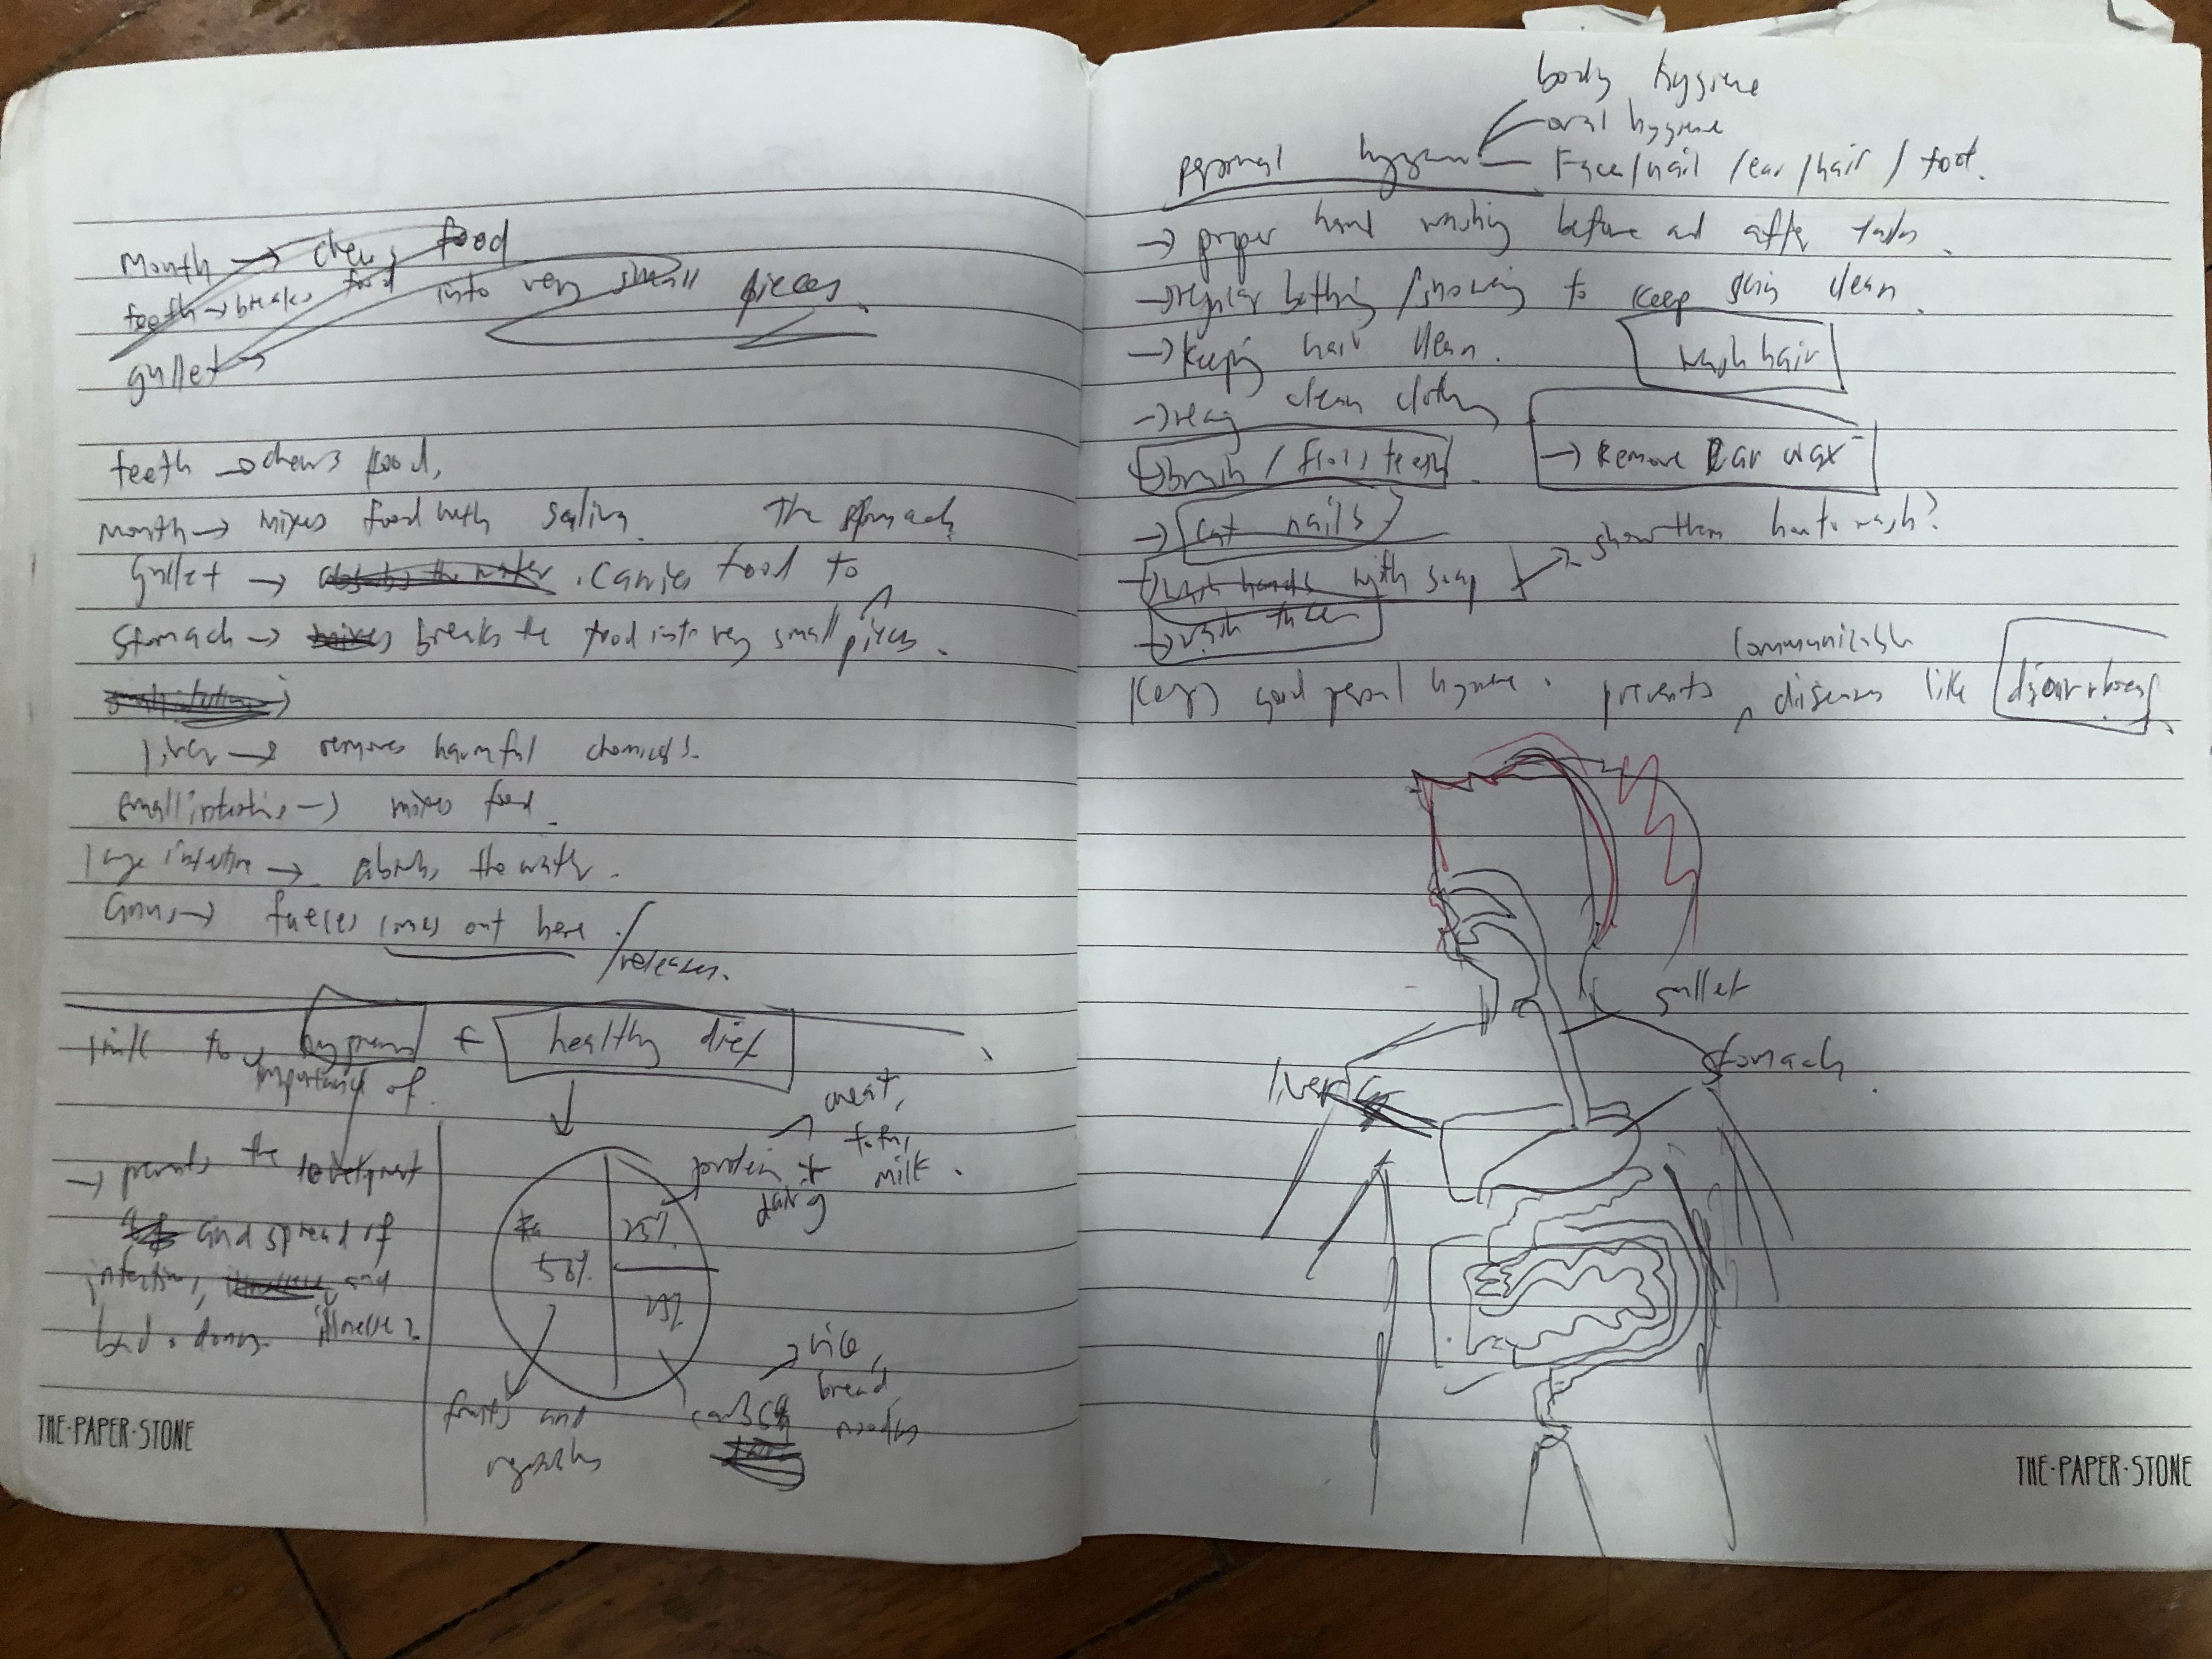 Mouth → chews food
teeth → breaks food into very small pieces.
gullet →
teeth → chews food,
Mouth → mixes food with saliva. The stomach
Gullet → absorbs the water . Carries food to
Stomach → mixes breaks the food into very small pieces.
liver → removes harmful chemicals.
small intestine → mixes food.
large intestine → absorbs the water.
Anus → faeces comes out here . / releases.
link to hygiene + healthy diet
importance of.
→ prevents the development
and spread of
infections, and
illnesses
bad odours.
50%
25%
25%
protein + dairy
meat,
tofu,
milk.
fruits and
vegetables
carbs
rice,
bread
noodles
THE·PAPER·STONE
body hygiene
oral hygiene
personal hygiene — Face/nail/ear/hair/foot.
→ proper hand washing before and after tasks.
→ regular bathing/showering to keep skin clean.
→ Keeping hair clean. wash hair
→ clean clothes
→ brush / floss teeth → Remove Ear wax
→ cut nails
→ wash hands with soap → show them how to wash?
→ wash face
Keep good personal hygiene. prevents communicable diseases like
gullet
stomach.
liver
THE·PAPER·STONE